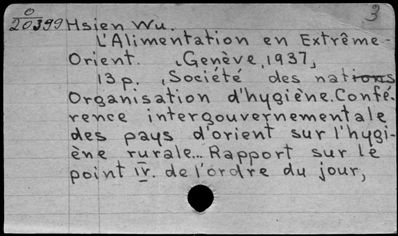 3
O
20399 Hsien Wu.
L'Alimentation en Extrême-
Orient. Genève, 1937,
13 p. , Société des nations
Organisation d'hygiène. Confé-
rence intergouvernementale
des pays d'orient sur l'hygi-
ène rurale... Rapport sur le
point IV. de l'ordre du jour,